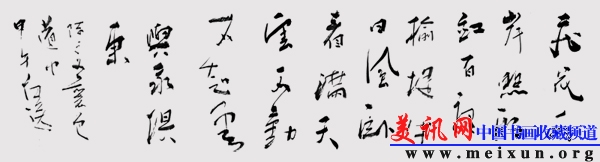 飛花两
岸照船
红百里
榆堤半
日風卧
看满天
雲不動
不知雲
與我俱
東
陈与义襄邑
道中
甲午
美讯网
中国书画收藏频道
www.meixun.org